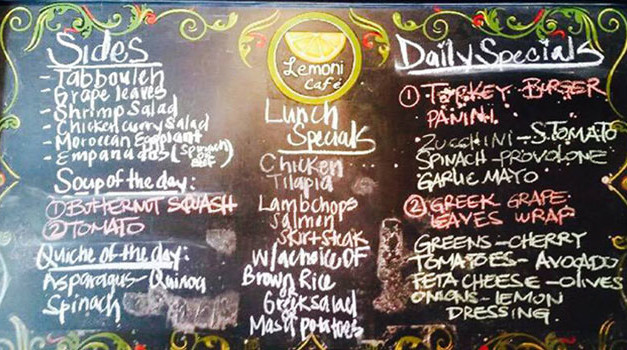 Sides
- Tabbouleh
- Grape leaves
- Shrimp Salad
- Chicken curry Salad
- Moroccan Eggplant
- Empanadas (spinach or beef)
Soup of the day:
① BUTTERNUT SQUASH
② TOMATO
Quiche of the day:
Asparagus - Quinoa
Spinach
Lemoni
Café
Lunch
Specials
Chicken
Tilapia
Lambchops
Salmon
Skirt steak
W/a choice OF
Brown Rice
Greek salad
Mash potatoes
Daily Specials
① TURKEY BURGER
PANINI
ZUCCHINI - S. TOMATO
SPINACH - PROVOLONE
GARLIC MAYO
② GREEK GRAPE
LEAVES WRAP
GREENS - CHERRY
TOMATOES - AVOCADO
FETA CHEESE - OLIVES
ONIONS - LEMON
DRESSING.